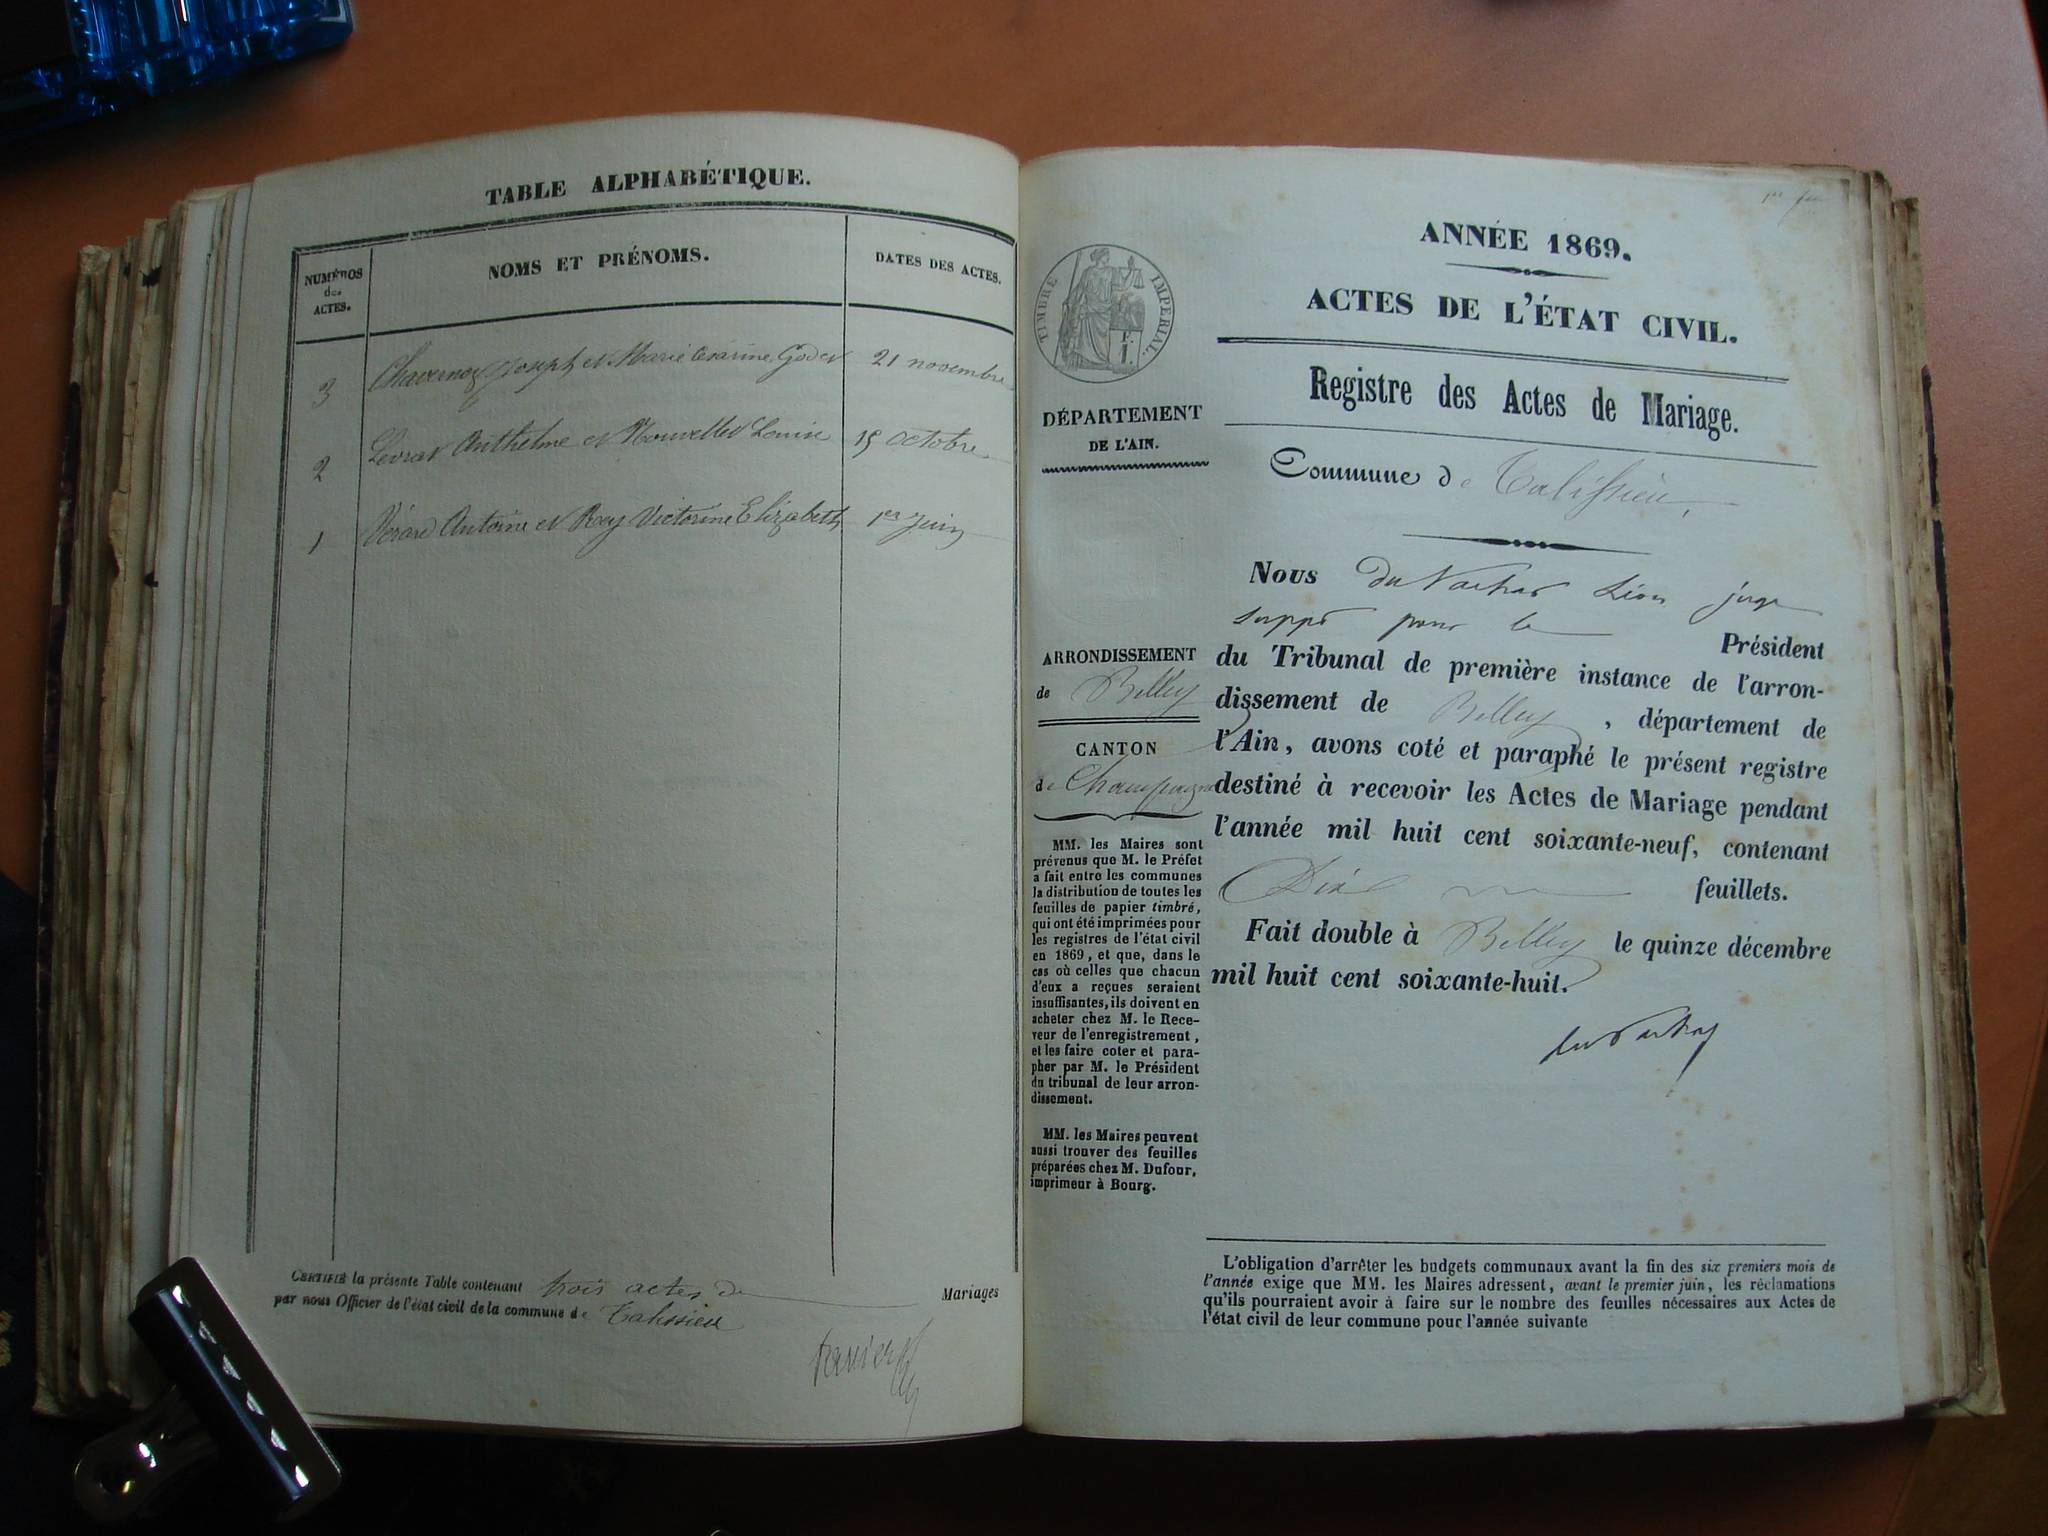 TABLE ALPHABÉTIQUE.
NUMÉROS
des
ACTES.
NOMS ET PRÉNOMS.
DATES DES ACTES.
3 Joseph et Marie Césarine 21 novembre
2 Levrat Anthelme et Louise 15 octobre
1 Antoine et Rey Victorine Elizabeth 1er Juin
CERTIFIÉ la présente Table contenant trois actes de Mariages
par nous Officier de l'état civil de la commune de Talissieu
TIMBRE IMPERIAL.
F.
1.
DÉPARTEMENT
DE L'AIN.
ARRONDISSEMENT
de Belley
CANTON
de Champagne
MM. les Maires sont
prévenus que M. le Préfet
a fait entre les communes
la distribution de toutes les
feuilles de papier timbré,
qui ont été imprimées pour
les registres de l'état civil
en 1869, et que, dans le
cas où celles que chacun
d'eux a reçues seraient
insuffisantes, ils doivent en
acheter chez M. le Rece-
veur de l'enregistrement,
et les faire coter et para-
pher par M. le Président
du tribunal de leur arron-
dissement.
MM. les Maires peuvent
aussi trouver des feuilles
préparées chez M. Dufour,
imprimeur à Bourg.
ANNÉE 1869.
ACTES DE L'ÉTAT CIVIL.
Registre des Actes de Mariage.
Commune de Talissieu,
Nous Léon juge
supp pour le Président
du Tribunal de première instance de l'arron-
dissement de Belley, département de
l'Ain, avons coté et paraphé le présent registre
destiné à recevoir les Actes de Mariage pendant
l'année mil huit cent soixante-neuf, contenant
Dix feuillets.
Fait double à Belley le quinze décembre
mil huit cent soixante-huit.
L'obligation d'arrêter les budgets communaux avant la fin des six premiers mois de
l'année exige que MM. les Maires adressent, avant le premier juin, les réclamations
qu'ils pourraient avoir à faire sur le nombre des feuilles nécessaires aux Actes de
l'état civil de leur commune pour l'année suivante